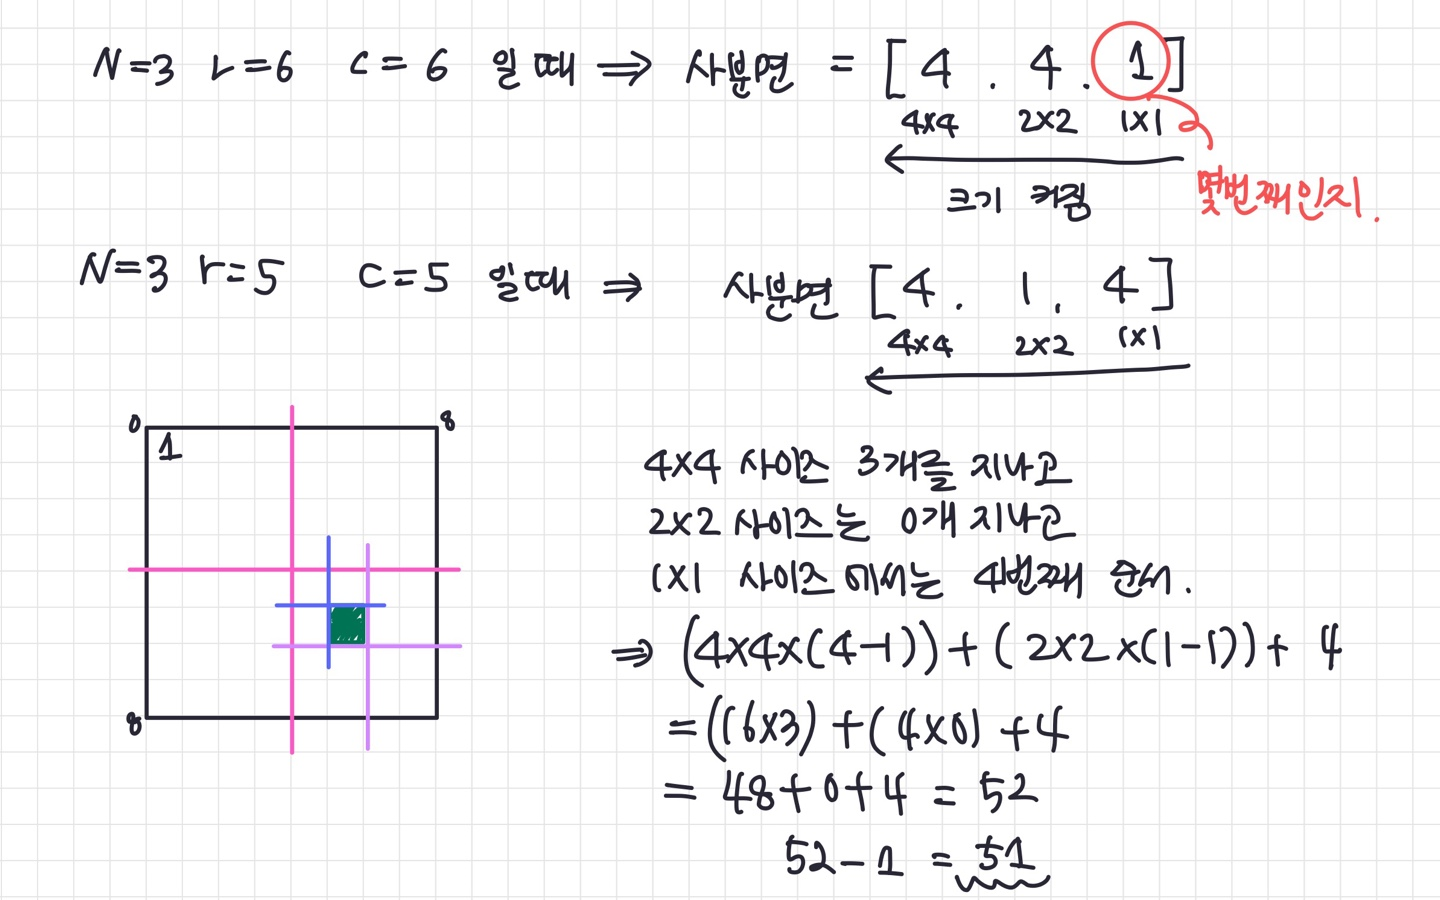 N=3 r=6 c=6 일 때 ⇒ 사분면 = [4 . 4 . 1]
4x4 2x2 1x1
크기 커짐
몇번째인지.
N=3 r=5 c=5 일때 ⇒ 사분면 [4 . 1 . 4]
4x4 2x2 1x1
0 8
1
8
4x4 사이즈 3개를 지나고
2x2 사이즈는 0개 지나고
1x1 사이즈에서는 4번째 순서.
⇒ (4x4x(4-1)) + (2x2x(1-1)) + 4
= (16x3) + (4x0) + 4
= 48+0+4 = 52
52-1 = 51